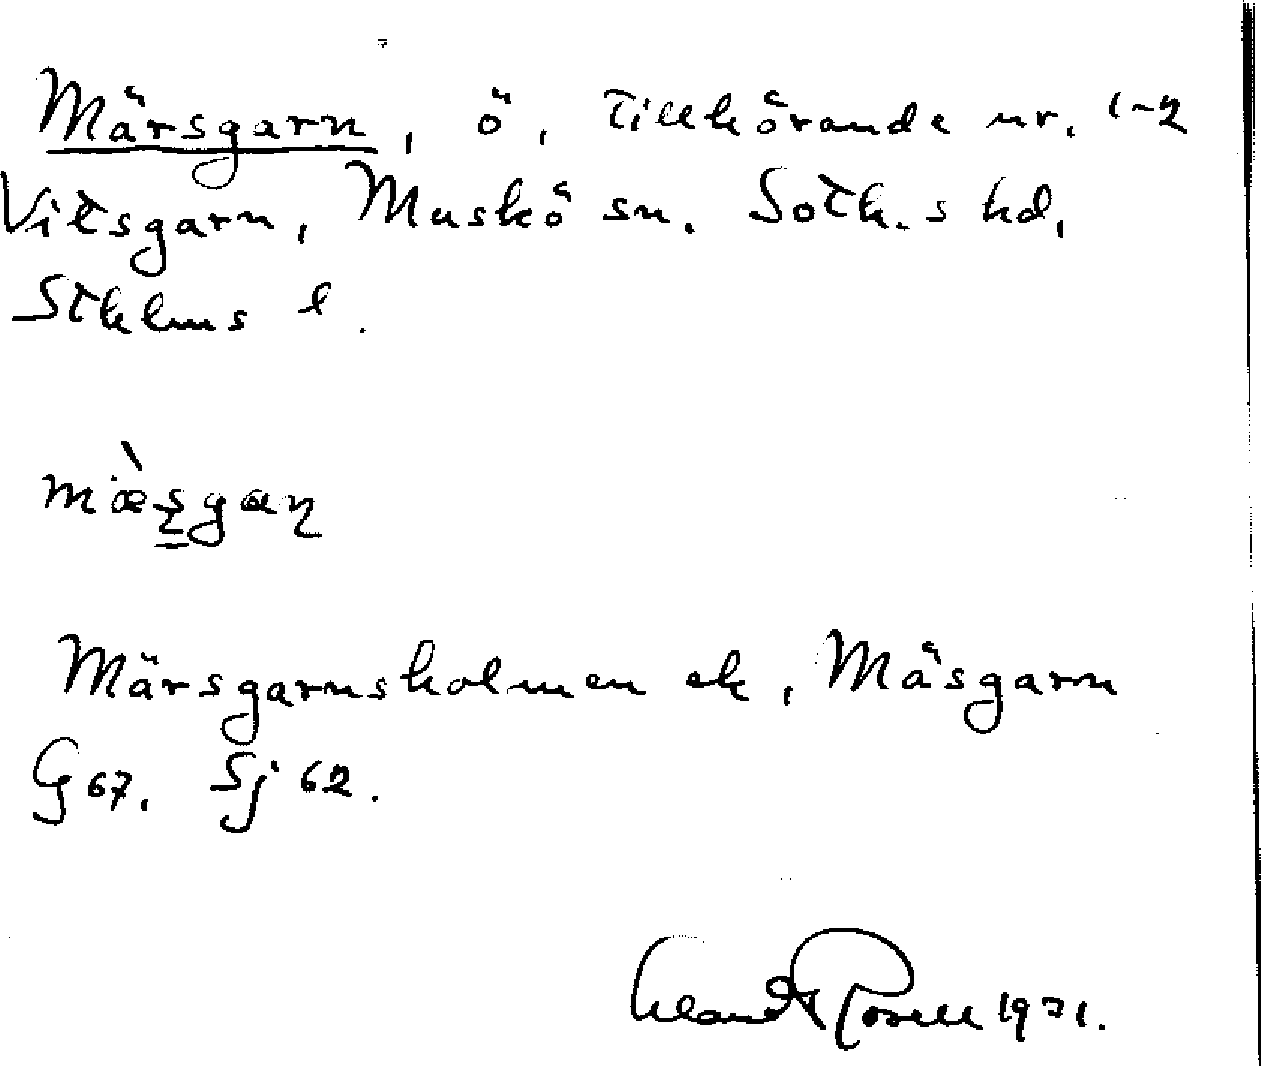 Märsgarn, ö, tillhörande nr. 1-2
Vitsgarn, Muskö sn. Soth. s hd,
Sthlms l.
mæ̀ṣgaṇ
Märsgarnsholmen ek, Mäsgarn
G 67. Sj 62.
1971.